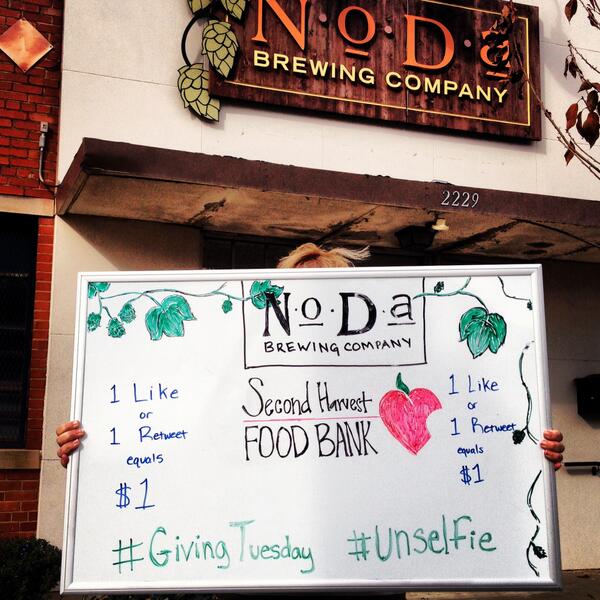 NoDa
BREWING COMPANY
2229
N·o·D·a
BREWING COMPANY
1 Like
or
1 Retweet
equals
$1
Second Harvest
FOOD BANK
1 Like
or
1 Retweet
equals
$1
#GivingTuesday #Unselfie